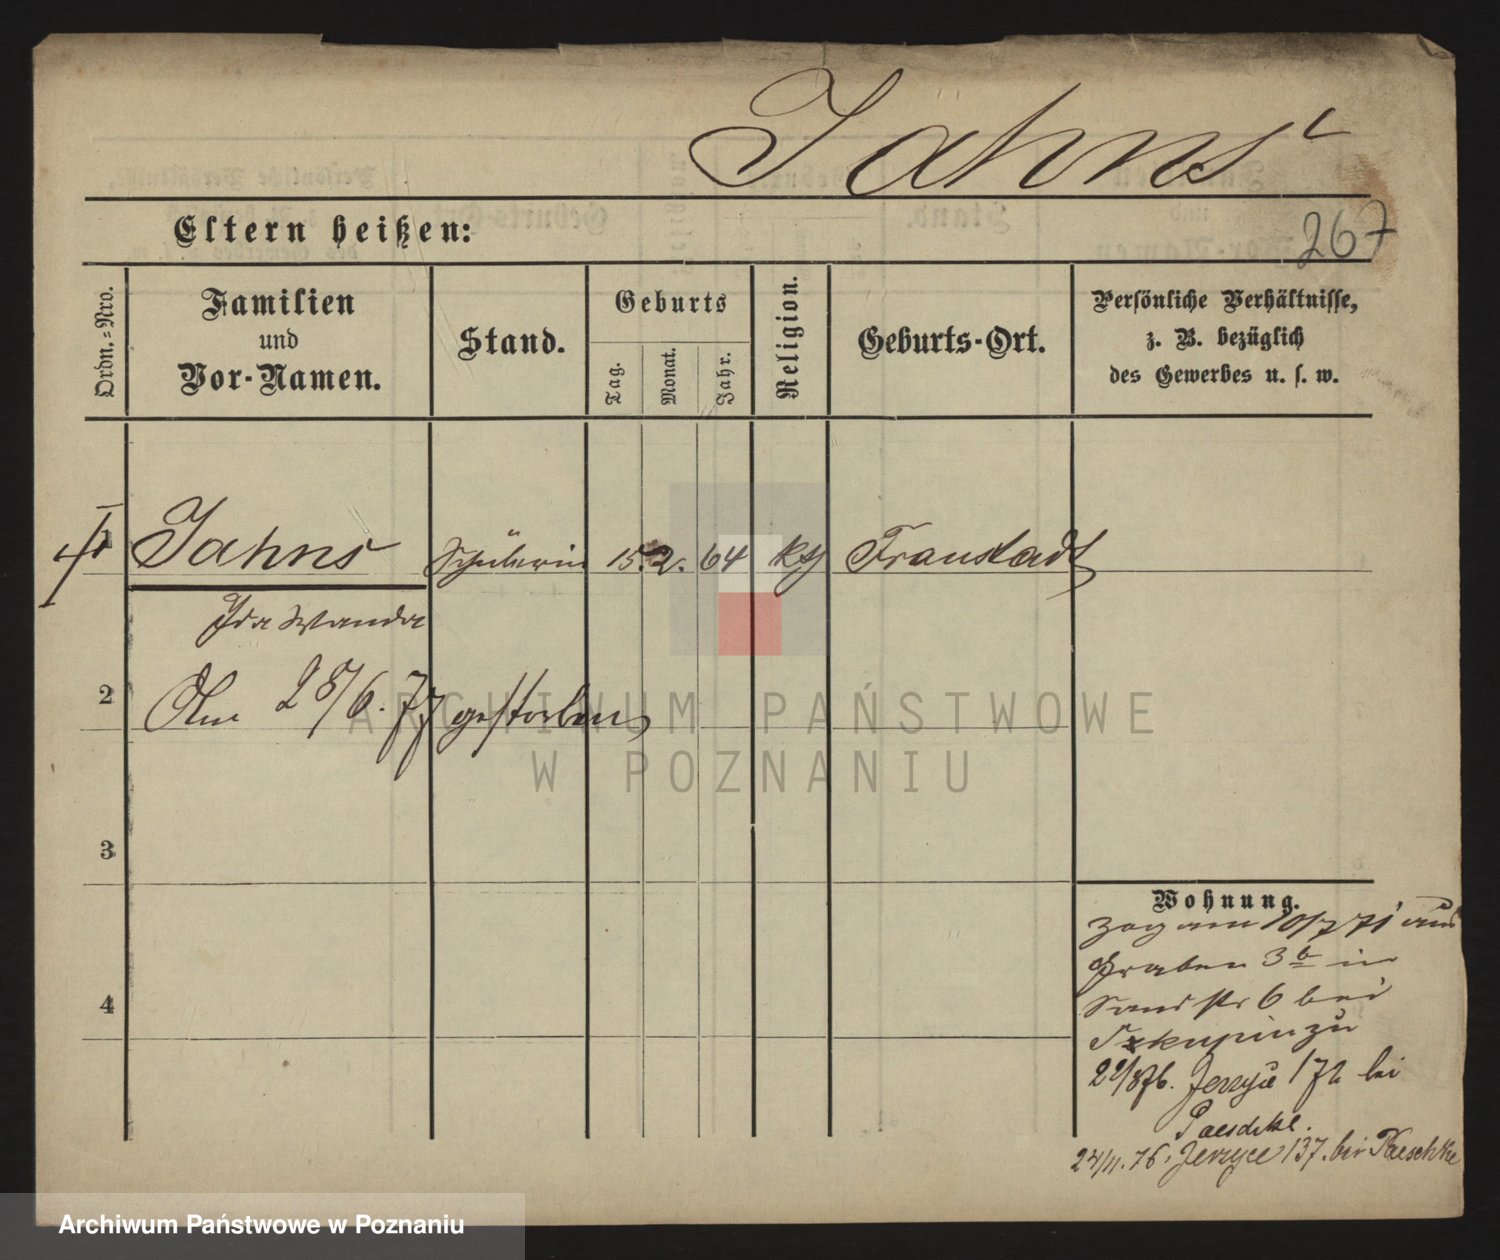 Jahns
267
Eltern heißen:
Ordn.-Nro.
Familien
und
Vor-Namen.
Stand.
Geburts
Tag.
Monat.
Jahr.
Religion.
Geburts-Ort.
Persönliche Verhältnisse,
z. B. bezüglich
des Gewerbes u. s. w.
1 Jahns Schülerin 15. 2. 64 kth Fraustadt
Ida Wanda
2 Am 28/6. 77 gestorben
ARCHIWUM PAŃSTWOWE
W POZNANIU
3
Wohnung.
zog am 10/7 71 aus
Graben 3 b in
Sandstr 6 bei
zu
4
22/8 76. Jerzyce 172 bei
Paeschke.
24/11. 76. Jerzyce 137. bei Paeschke
Archiwum Państwowe w Poznaniu